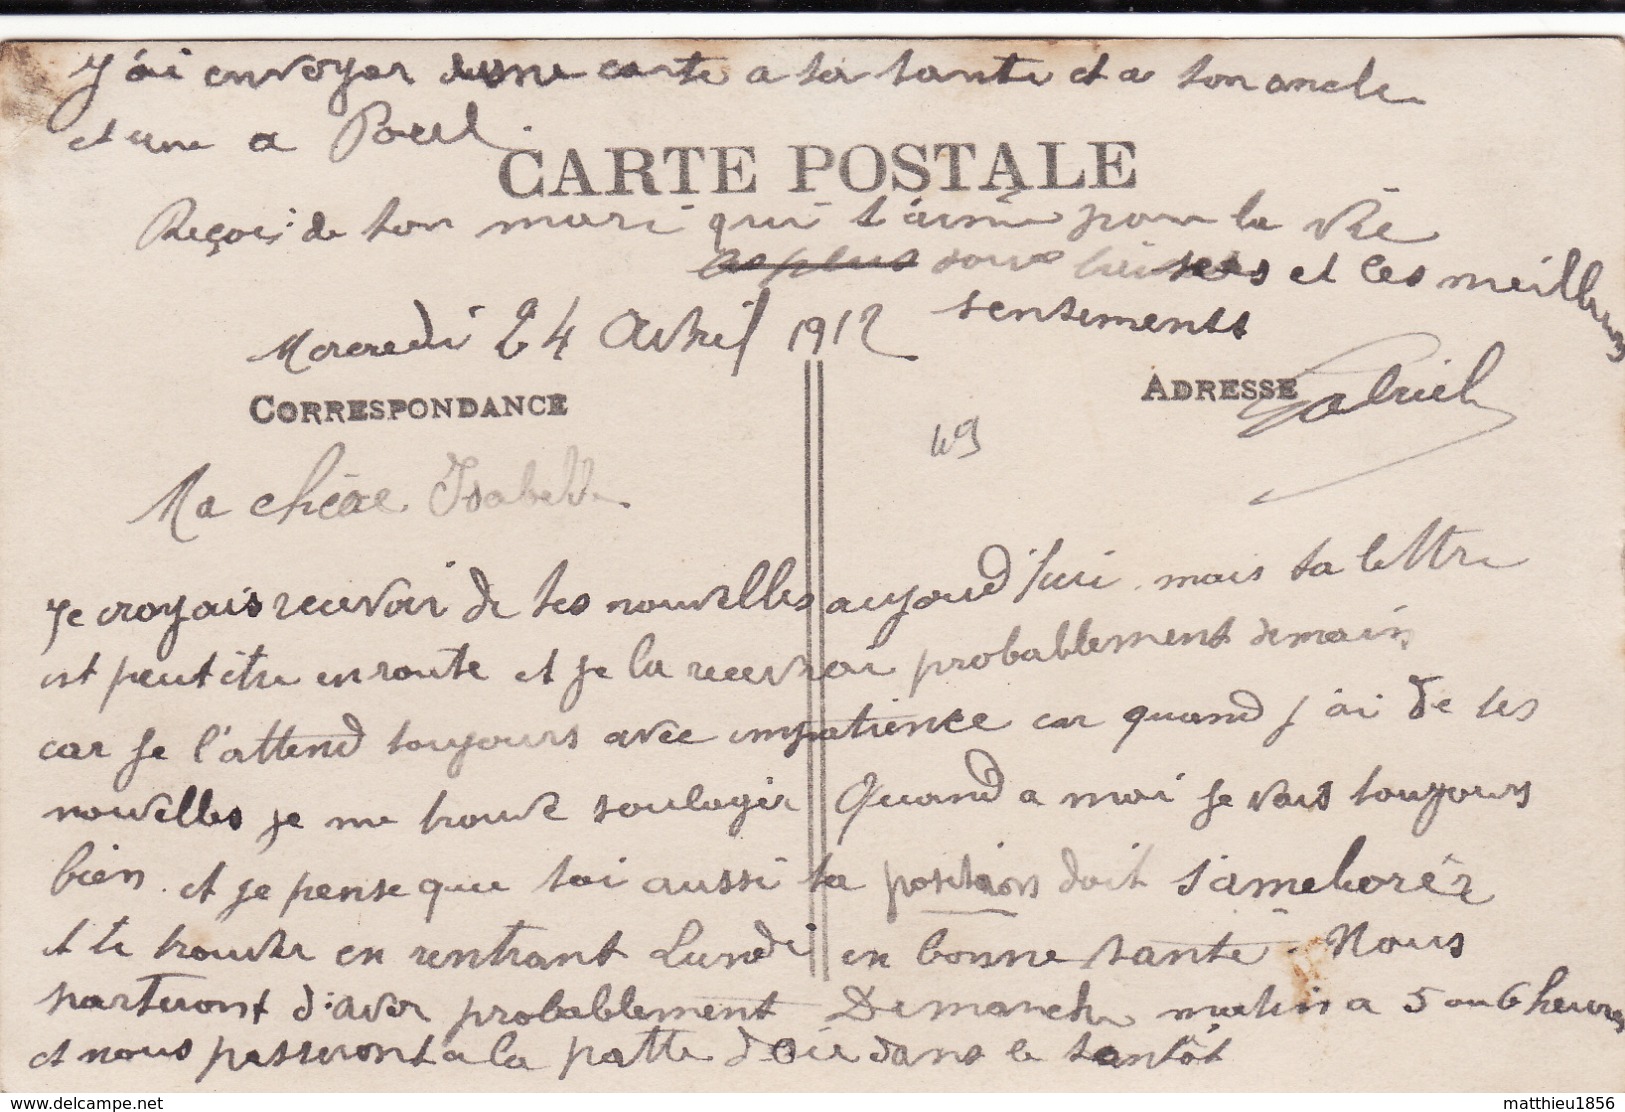 J'ai envoyer une carte a ta tante et a ton oncle
et une a Paul.
CARTE POSTALE
Reçois de ton mari qui t'aime pour la vie
les plus doux baisers et ces meilleurs
sentiments
Mercredi 24 Avril 1912
CORRESPONDANCE
ADRESSE
Gabriel
49
Ma chère Isabelle
Je croyais recevoir de tes nouvelles aujourd'hui mais ta lettre
est peut être en route et je la recevrai probablement demain
car je l'attend toujours avec impatience car quand j'ai de tes
nouvelles je me trouve soulager Quand a moi je vais toujours
bien et je pense que toi aussi ta position doit s'ameliorér
et te trouver en rentrant Lundi en bonne santé. Nous
parteront d'aver probablement Dimanche matin a 5 ou 6 heures
et nous passeront a la patte d'oie dans le tantôt
matthieu1856